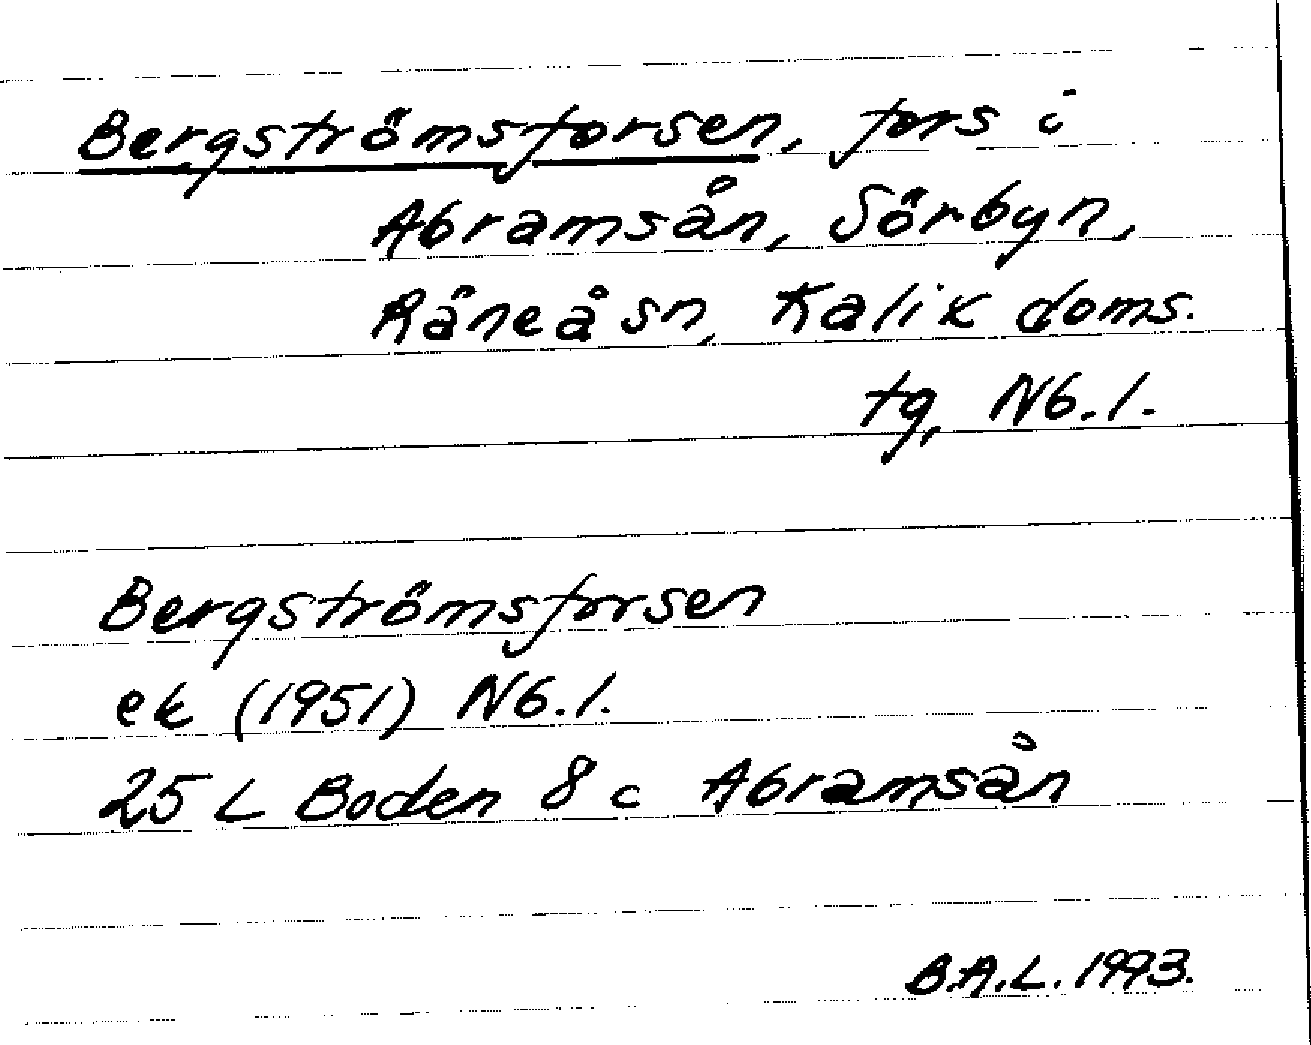 Bergströmsforsen, fors i
Abramsån, Sörbyn,
Råneå sn, Kalix doms.
tg, Nb. l.
Bergströmsforsen
ek (1951) Nb. l.
25 L Boden 8 c Abramsån
B.A.L. 1993.